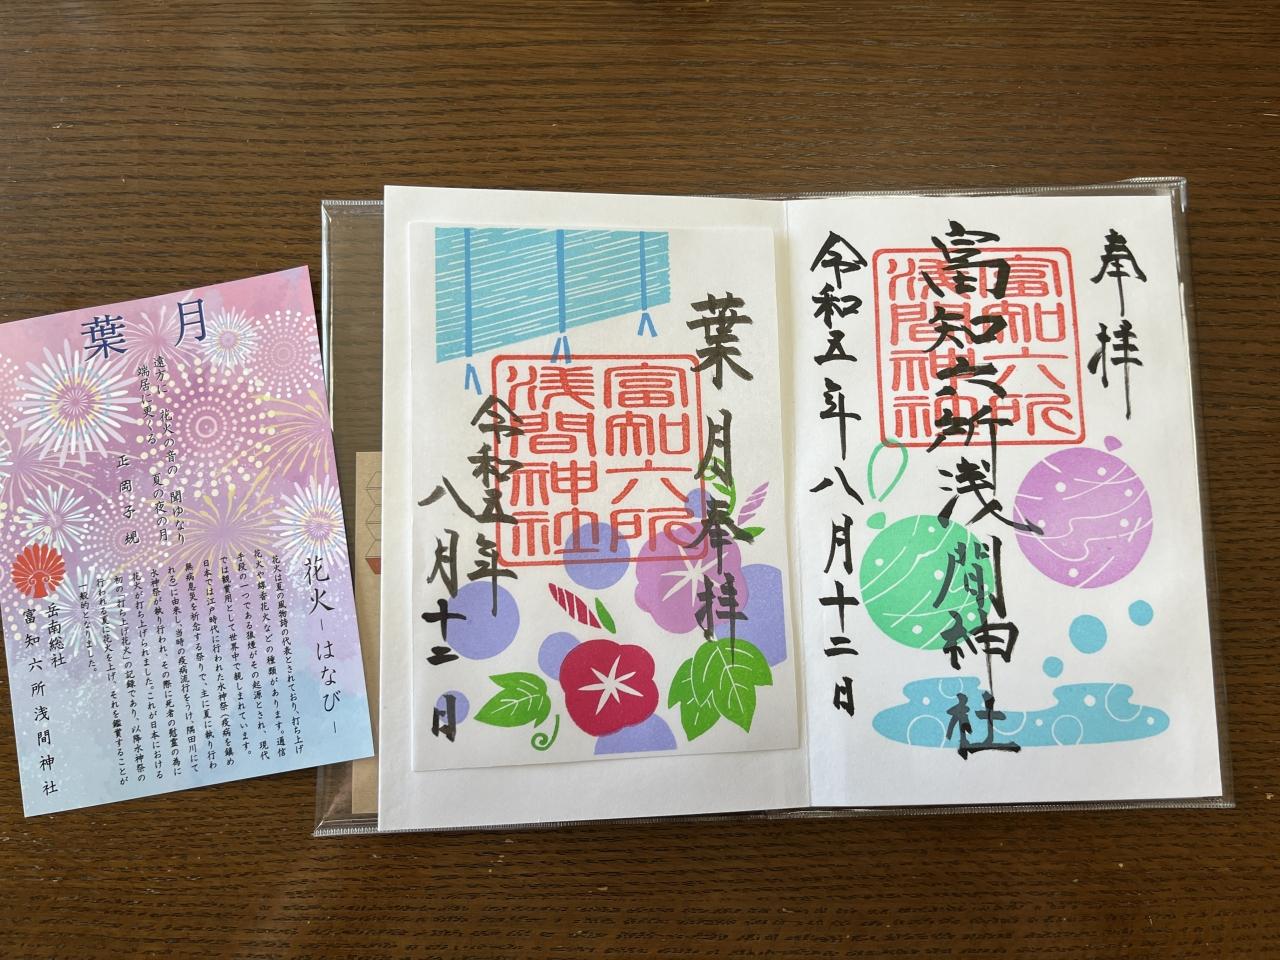 奉拝
富知六所浅間神社
令和五年八月十二日
富知六所
浅間神社
葉月奉拝
令和五年
八月十二日
富知六所
浅間神社
葉月
遠方に 花火の音の 聞ゆなり
端居に更くる 夏の夜の月
正岡子規
花火-はなび-
花火は夏の風物詩の代表とされており、打ち上げ
花火や線香花火などの種類があります。通信
手段の一つである狼煙がその起源とされ、現代
では観賞用として世界中で親しまれています。
日本では江戸時代に行われた水神祭(疫病を鎮め
無病息災を祈念する祭りで、主に夏に執り行わ
れる)に由来し、当時の疫病流行をうけ、隅田川にて
水神祭が執り行われ、その際に死者の慰霊の為に
花火が打ち上げられました。これが日本における
初の「打ち上げ花火」の記録であり、以降水神祭の
行われる夏に花火を上げ、それを鑑賞することが
一般的となりました。
岳南総社
富知六所浅間神社